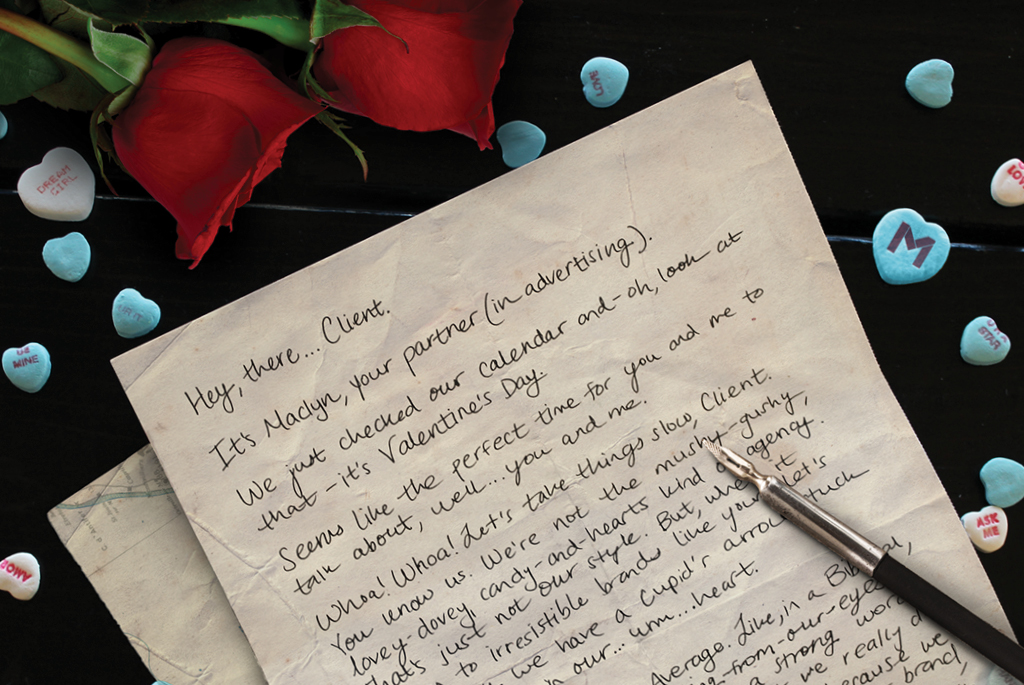 Hey, there... Client.
It's Maclyn, your partner (in advertising).
We just checked our calendar and-oh, look at
that - it's Valentine's Day.
Seems like the perfect time for you and me to
talk about, well... you and me.
Whoa! Whoa! Let's take things slow, Client.
You know us. We're not the mushy-gushy,
lovey-dovey, candy-and-hearts kind agency.
that's just not our style. But, when it
to irresistible brands like you let's
we have a Cupid's arrow stuck
in our... umm... heart.
Average. Like, in a
-from-our-eyes
a strong word
we really
because we
brand,
LOVE
DREAM
GIRL
BE
MINE
M
LOVE
STAR
ASK
ME
AMOR